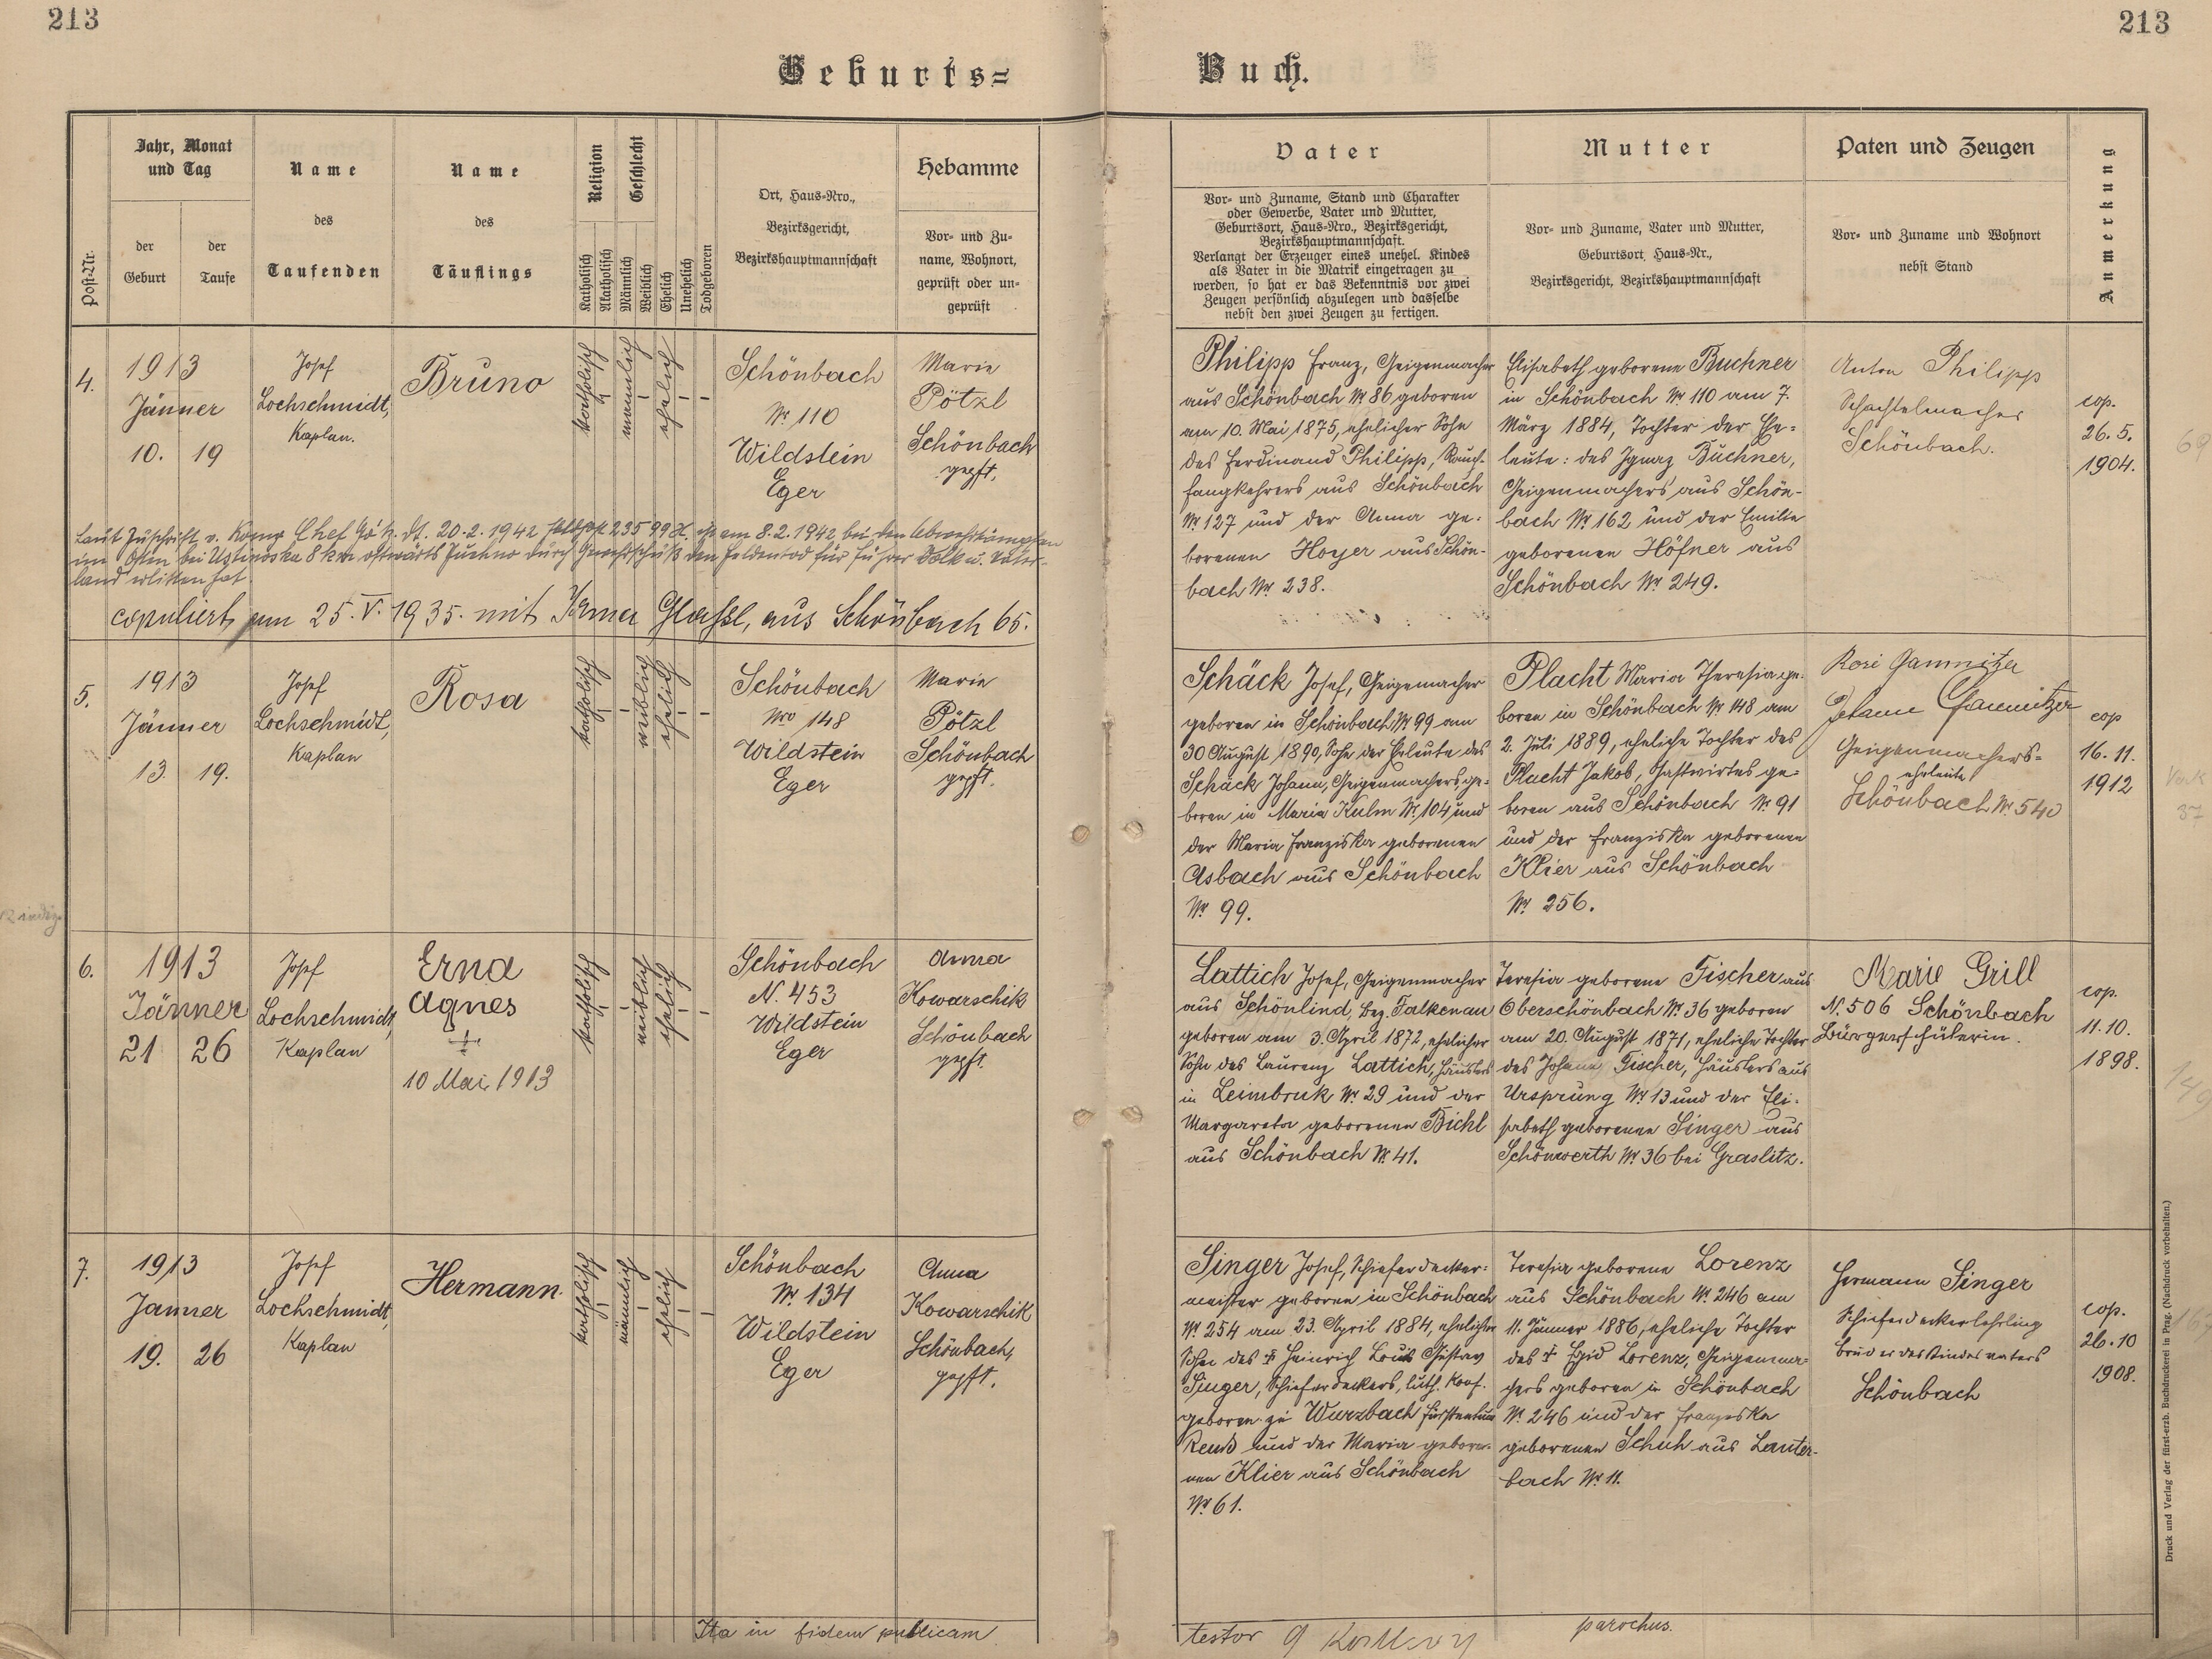 213
213
Geburts=
Buch.
Post-Nr.
Jahr, Monat
und Tag
der
Geburt
der
Taufe
Name
des
Taufenden
Name
des
Täuflings
Religion
Geschlecht
Katholisch
Akatholisch
Männlich
Weiblich
Ehelich
Unehelich
Todgeboren
Ort, Haus-Nro.,
Bezirksgericht,
Bezirkshauptmannschaft
Hebamme
Vor- und Zu-
name, Wohnort,
geprüft oder un-
geprüft
Vater
Vor- und Zuname, Stand und Charakter
oder Gewerbe, Vater und Mutter,
Geburtsort, Haus-Nro., Bezirksgericht,
Bezirkshauptmannschaft.
Verlangt der Erzeuger eines unehel. Kindes
als Vater in die Matrik eingetragen zu
werden, so hat er das Bekenntnis vor zwei
Zeugen persönlich abzulegen und dasselbe
nebst den zwei Zeugen zu fertigen.
Mutter
Vor- und Zuname, Vater und Mutter,
Geburtsort, Haus-Nr.,
Bezirksgericht, Bezirkshauptmannschaft
Paten und Zeugen
Vor- und Zuname und Wohnort
nebst Stand
Anmerkung
4.
1913
Jänner
10. 19
Josef
Lochschmidt,
Kaplan.
Bruno
katholisch
männlich
ehelich
Schönbach
Nr. 110
Wildstein
Eger
Marie
Pötzl
Schönbach
gepft.
Philipp Franz, Geigenmacher
aus Schönbach Nr. 86 geboren
am 10. Mai 1875, ehelicher Sohn
des Ferdinand Philipp, Rauch-
fangkehrers aus Schönbach
Nr. 127 und der Anna ge-
borenen Hoyer aus Schön-
bach Nr. 238.
Elisabeth geborene Buchner
in Schönbach Nr. 110 am 7.
März 1884, Tochter der Ehe-
leute: des Ignaz Buchner,
Geigenmachers aus Schön-
bach Nr. 162 und der Emilie
geborenen Höfner aus
Schönbach Nr. 249.
Anton Philipp
Schachtelmacher
Schönbach.
cop.
26. 5.
1904.
Laut Zuschrift v. Komp Chef dt. 20.2.1942 Feldpost 23599 am 8.2.1942 bei den Abwehrkämpfen
im Osten bei 8 km ostwärts durch den Heldentod für Führer Volk u. Vater-
land erlitten hat.
copuliert am 25. V. 1935. mit Irma Glassl, aus Schönbach 65.
5.
1913
Jänner
13. 19.
Josef
Lochschmidt,
Kaplan
Rosa
katholisch
weiblich
ehelich
Schönbach
Nro 148
Wildstein
Eger
Marie
Pötzl
Schönbach
gepft.
Schäck Josef, Geigenmacher
geboren in Schönbach Nr. 99 am
30 August 1890, Sohn der Eheleute des
Schäck Johann, Geigenmachers, ge-
boren in Maria Kulm Nr. 104 und
der Maria Franziska geborenen
Asbach aus Schönbach
Nr. 99.
Placht Maria Theresia ge-
boren in Schönbach Nr. 148 am
2. Juli 1889, eheliche Tochter des
Placht Jakob, Gastwirtes ge-
boren aus Schönbach Nr. 91
und der Franziska geborenen
Klier aus Schönbach
Nr. 256.
Rosi Gamnitzer
Johann Gamnitzer
Geigenmachers=
eheleute
Schönbach Nr. 540
cop
16. 11.
1912
6.
1913
Jänner
21 26
Josef
Lochschmidt,
Kaplan
Erna
Agnes
10 Mai 1913
katholisch
weiblich
ehelich
Schönbach
N. 453
Wildstein
Eger
Anna
Kowarschik
Schönbach
gepft.
Lattich Josef, Geigenmacher
aus Schönlind, Bez. Falkenau
geboren am 3. April 1872, ehelicher
Sohn des Laurenz Lattich, Häuslers
in Leimbruk Nr. 29 und der
Margareta geborenen Bichl
aus Schönbach Nr. 41.
Teresia geborene Fischer aus
Oberschönbach Nr. 36 geboren
am 20. August 1871, eheliche Tochter
des Johann Fischer, Häuslers aus
Ursprung Nr. 13 und der Eli-
sabeth geborenen Singer aus
Schönwerth Nr. 36 bei Graslitz.
Marie Grill
N. 506 Schönbach
Bürgerschülerin.
cop.
11. 10.
1898.
7.
1913
Jänner
19. 26
Josef
Lochschmidt,
Kaplan
Hermann.
katholisch
männlich
ehelich
Schönbach
Nr. 134
Wildstein
Eger
Anna
Kowarschik
Schönbach,
gepft.
Singer Josef, Schieferdecker-
meister geboren in Schönbach
Nr. 254 am 23. April 1884, ehelicher
Sohn des † Heinrich Louis Gustav
Singer, Schieferdeckers, luth. Konf.
geboren zu Wurzbach Fürstentum
Reuß und der Maria gebore-
nen Klier aus Schönbach
Nr. 61.
Teresia geborene Lorenz
aus Schönbach Nr. 246 am
11. Jänner 1886, eheliche Tochter
des † Egid Lorenz, Geigenma-
chers geboren in Schönbach
Nr. 246 und der Franziska
geborenen Schuh aus Lauter-
bach Nr. 11.
Hermann Singer
Schieferdeckerlehrling
Bruder des Kindesvaters
Schönbach
cop.
26. 10
1908.
Ita in fidem publicam
testor
parochus.
Druck und Verlag der fürst-erzb. Buchdruckerei in Prag. (Nachdruck vorbehalten.)